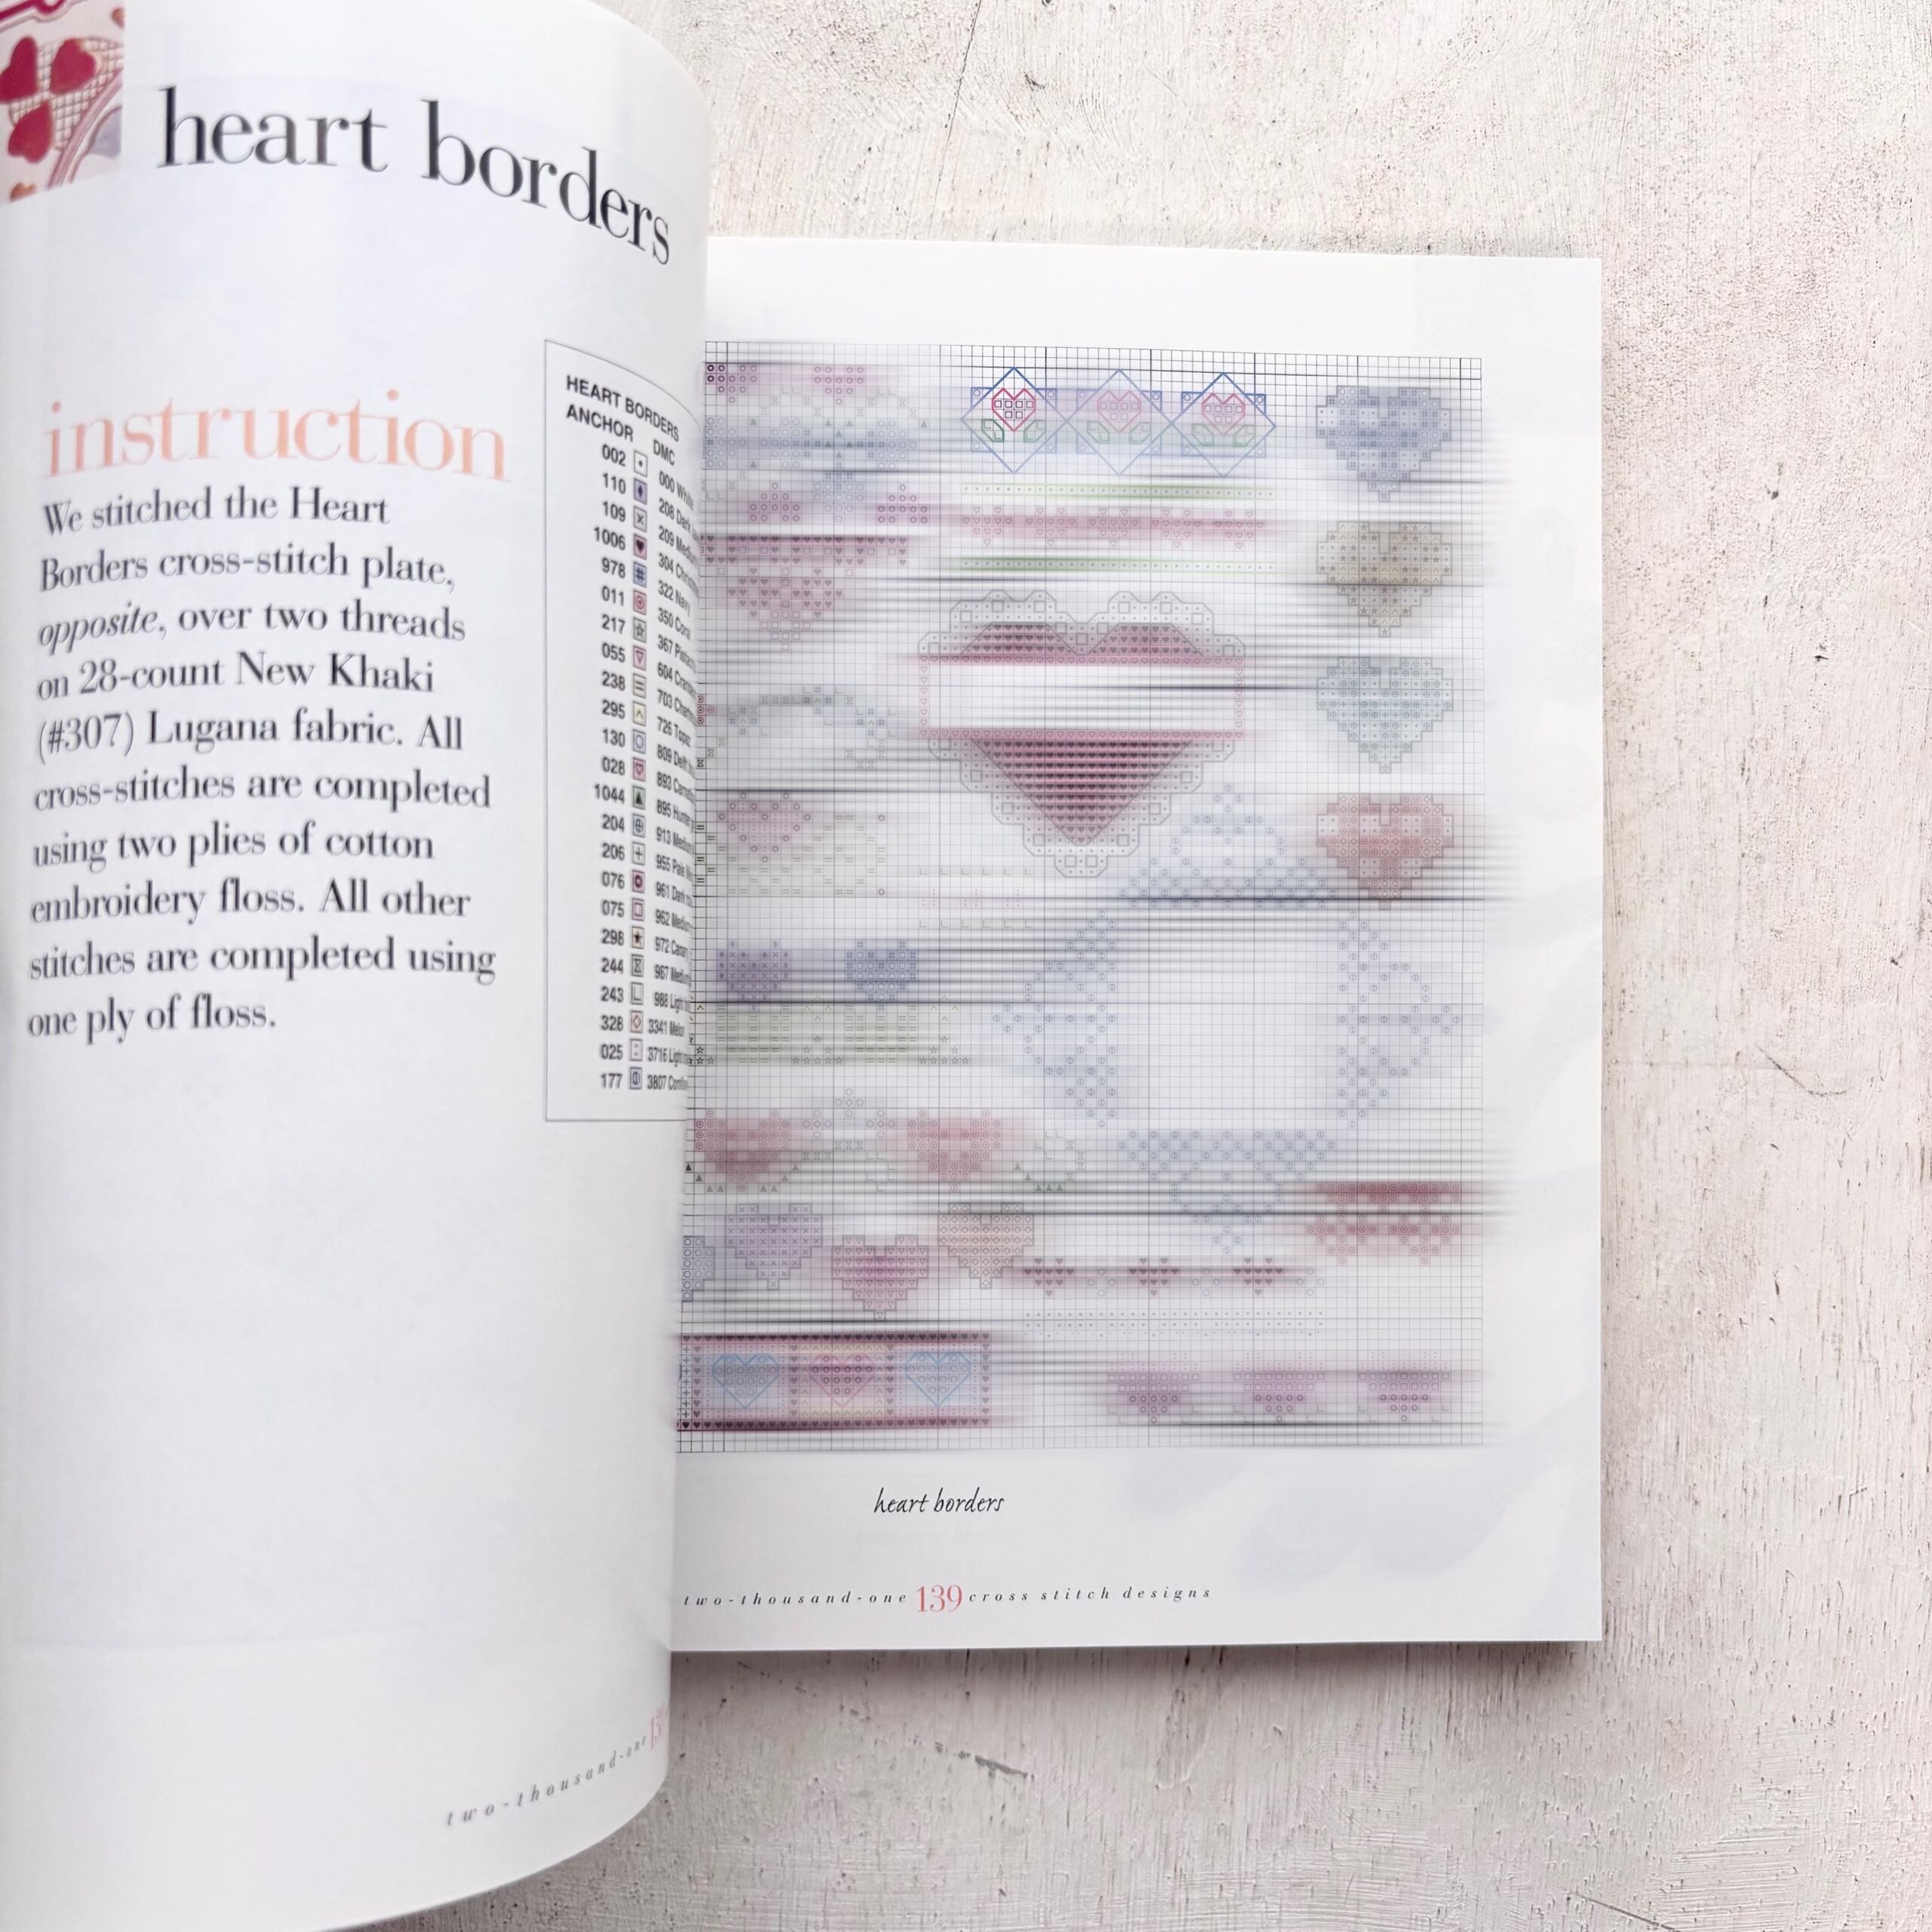 heart borders
instruction
We stitched the Heart
Borders cross-stitch plate,
opposite, over two threads
on 28-count New Khaki
(#307) Lugana fabric. All
cross-stitches are completed
using two plies of cotton
embroidery floss. All other
stitches are completed using
one ply of floss.
HEART BORDERS
ANCHOR DMC
002 000
110 208
109 209
1006 304
978 322
011 350
217 367
055 604
238 703
295 726
130 809
028 893
1044 895
204 913
206 955 Pale
076 961 Dark
075 962
298 972
244 987
243 988 Light
328 3341 Melon
025 3716 Light
177 3807
two-thousand-one
heart borders
two-thousand-one 139 cross stitch designs